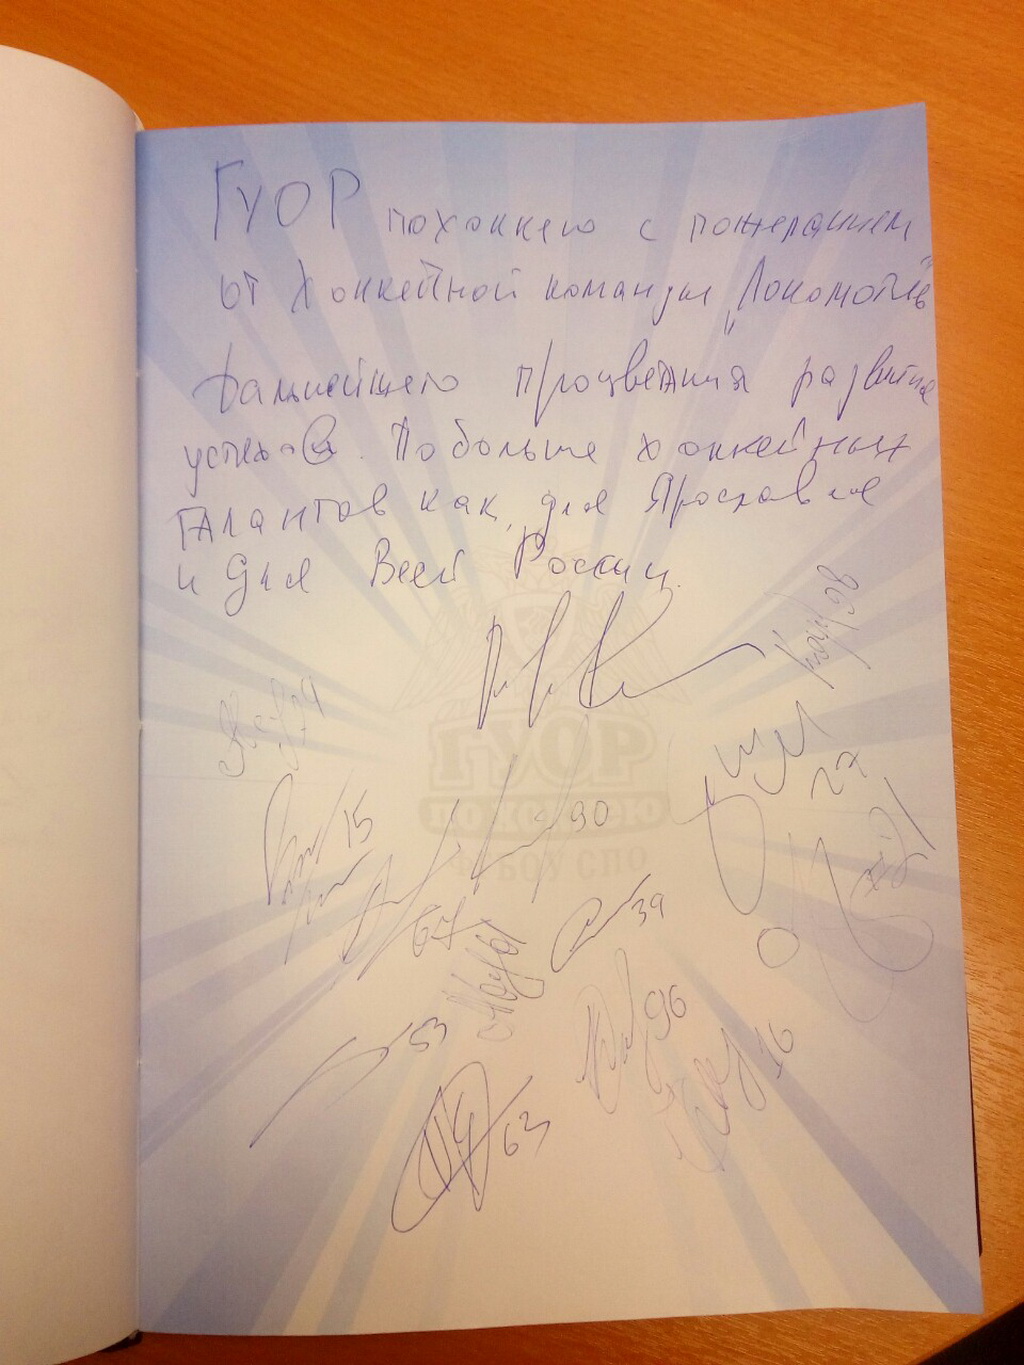 ГУОР по хоккею с пожеланием
от Хоккейной команды "Локомотив"
Дальнейшего процветания развития
успехов. Побольше хоккейных
талантов как для Ярославля
и для Всей России.
98
74
ГУОР
ПО ХОККЕЮ
ФГБОУ СПО
27
15
90
67
39
53
96
16
63